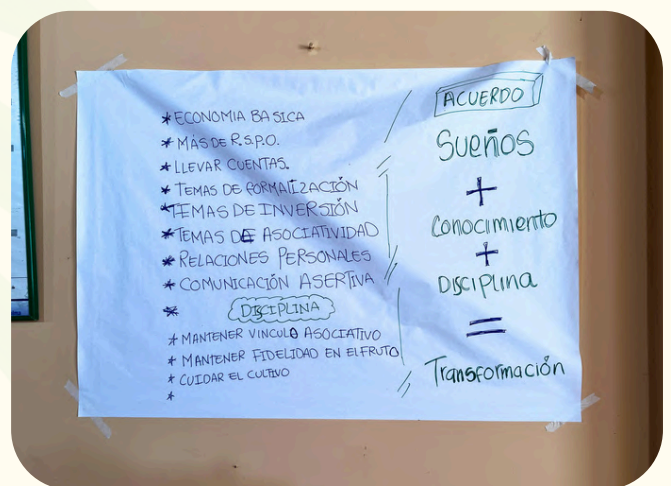 * ECONOMIA BASICA
* MÁS DE R.S.P.O.
* LLEVAR CUENTAS.
* TEMAS DE FORMALIZACIÓN
* TEMAS DE INVERSIÓN
* TEMAS DE ASOCIATIVIDAD
* RELACIONES PERSONALES
* COMUNICACIÓN ASERTIVA
* DISCIPLINA
* MANTENER VINCULO ASOCIATIVO
* MANTENER FIDELIDAD EN EL FRUTO
* CUIDAR EL CULTIVO
*
ACUERDO
Sueños
+
Conocimiento
+
Disciplina
=
Transformación